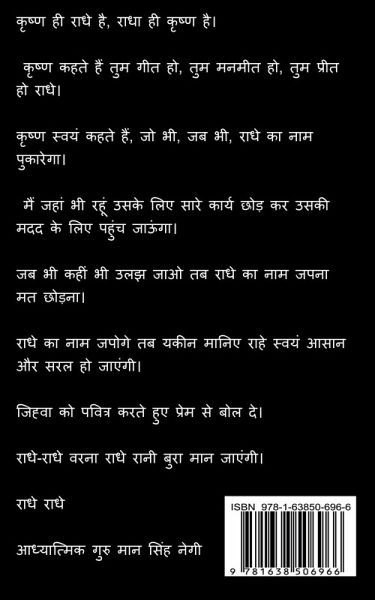 कृष्ण ही राधे है, राधा ही कृष्ण है।
कृष्ण कहते हैं तुम गीत हो, तुम मनमीत हो, तुम प्रीत
हो राधे।
कृष्ण स्वयं कहते हैं, जो भी, जब भी, राधे का नाम
पुकारेगा।
मैं जहां भी रहूं उसके लिए सारे कार्य छोड़ कर उसकी
मदद के लिए पहुंच जाऊंगा।
जब भी कहीं भी उलझ जाओ तब राधे का नाम जपना
मत छोड़ना।
राधे का नाम जपोगे तब यकीन मानिए राहे स्वयं आसान
और सरल हो जाएंगी।
जिह्वा को पवित्र करते हुए प्रेम से बोल दे।
राधे-राधे वरना राधे रानी बुरा मान जाएंगी।
राधे राधे
आध्यात्मिक गुरु मान सिंह नेगी
ISBN 978-1-63850-696-6
9 781638 506966